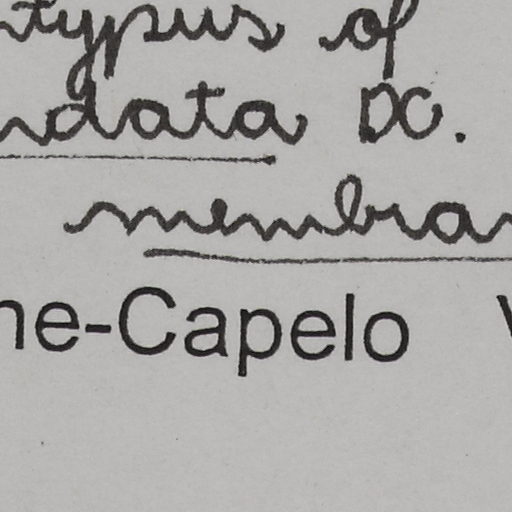 typus of
ndata DC.
membra
ne-Capelo